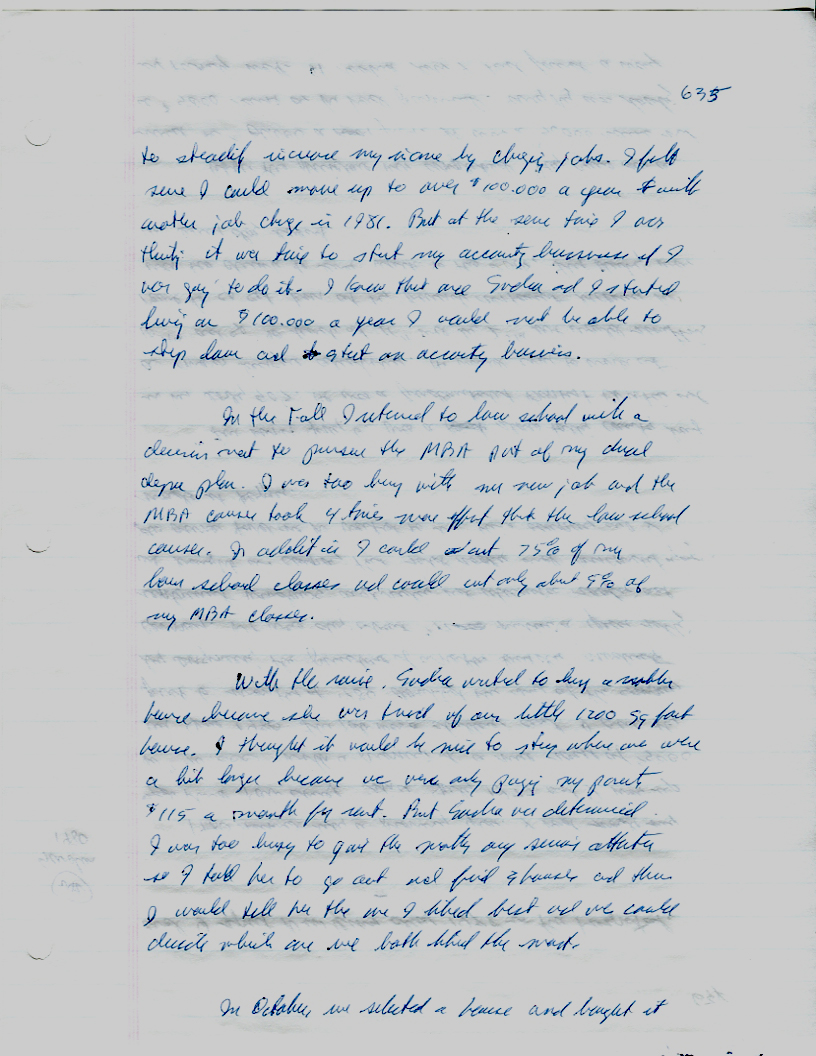 635
to steadily increase my income by changing jobs. I felt
sure I could move up to over $100.000 a year with
another job change in 1981. But at the same time I was
thinking it was time to start my accounting business if I
was going to do it. I knew that once Sudha and I started
living on $100.000 a year I would not be able to
step down and start an accounting business.
In the Fall I returned to law school with a
decision not to pursue the MBA part of my dual
degree plan. I was too busy with my new job and the
MBA course took 4 times more effort than the law school
courses. In addition I could cut 75% of my
law school classes and could cut only about 5% of
my MBA classes.
With the raise, wanted to buy another
house because she was tired of our little 1200 sq foot
house. I thought it would be nice to stay where we were
a bit longer because we were only paying my parents
$115 a month for rent. But was determined
I was too busy to give the matter any serious attention
so I told her to go out and find houses and then
I would tell her the one I liked best and we could
decide which one we both liked the most.
In October, we selected a house and bought it